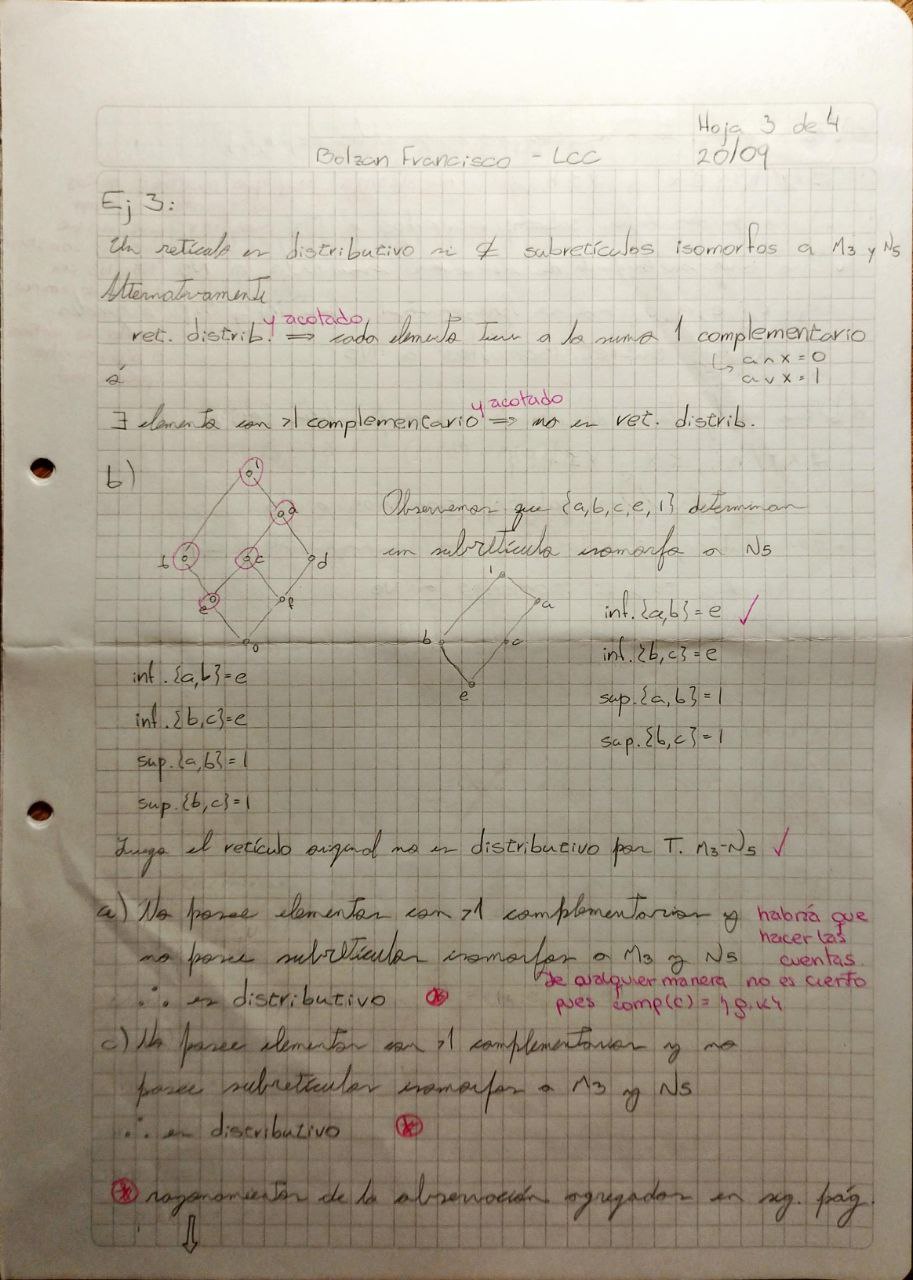 Hoja 3 de 4
Bolzan Francisco - LCC 20/09
Ej 3:
Un retículo es distributivo si ∄ subretículos isomorfos a M3 y N5
Alternativamente
y acotado
ret. distrib. ⟹ cada elemento tiene a lo sumo 1 complementario
↳ a ∧ x = 0
a ∨ x = 1
ó
y acotado
∃ elemento con >1 complementario ⟹ no es ret. distrib.
b)
1
a
b
c
d
e
f
0
Observemos que {a,b,c,e,1} determinan
un subretículo isomorfo a N5
1
a
b
c
e
inf.{a,b}=e
inf.{b,c}=e
sup.{a,b}=1
sup.{b,c}=1
inf.{a,b}=e ✓
inf.{b,c}=e
sup.{a,b}=1
sup.{b,c}=1
Luego el retículo original no es distributivo por T. M3-N5 ✓
a) No posee elementos con >1 complementarios y
no posee subretículos isomorfos a M3 y N5
∴ es distributivo *
habría que
hacer las
cuentas.
De cualquier manera no es cierto
pues comp(c) = {g,k}
c) No posee elementos con >1 complementarios y no
posee subretículos isomorfos a M3 y N5
∴ es distributivo *
* razonamientos de la observación agregados en sig. pág.